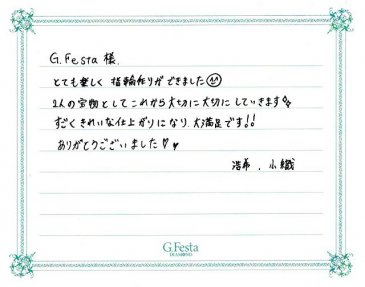 G.Festa 様.
とても楽しく 指輪作りができました
2人の宝物としてこれから大切に大切にしていきます
すごくきれいな仕上がりになり、大満足です!!
ありがとうございました♡♥
浩希 . 小織
G.Festa
DIAMOND